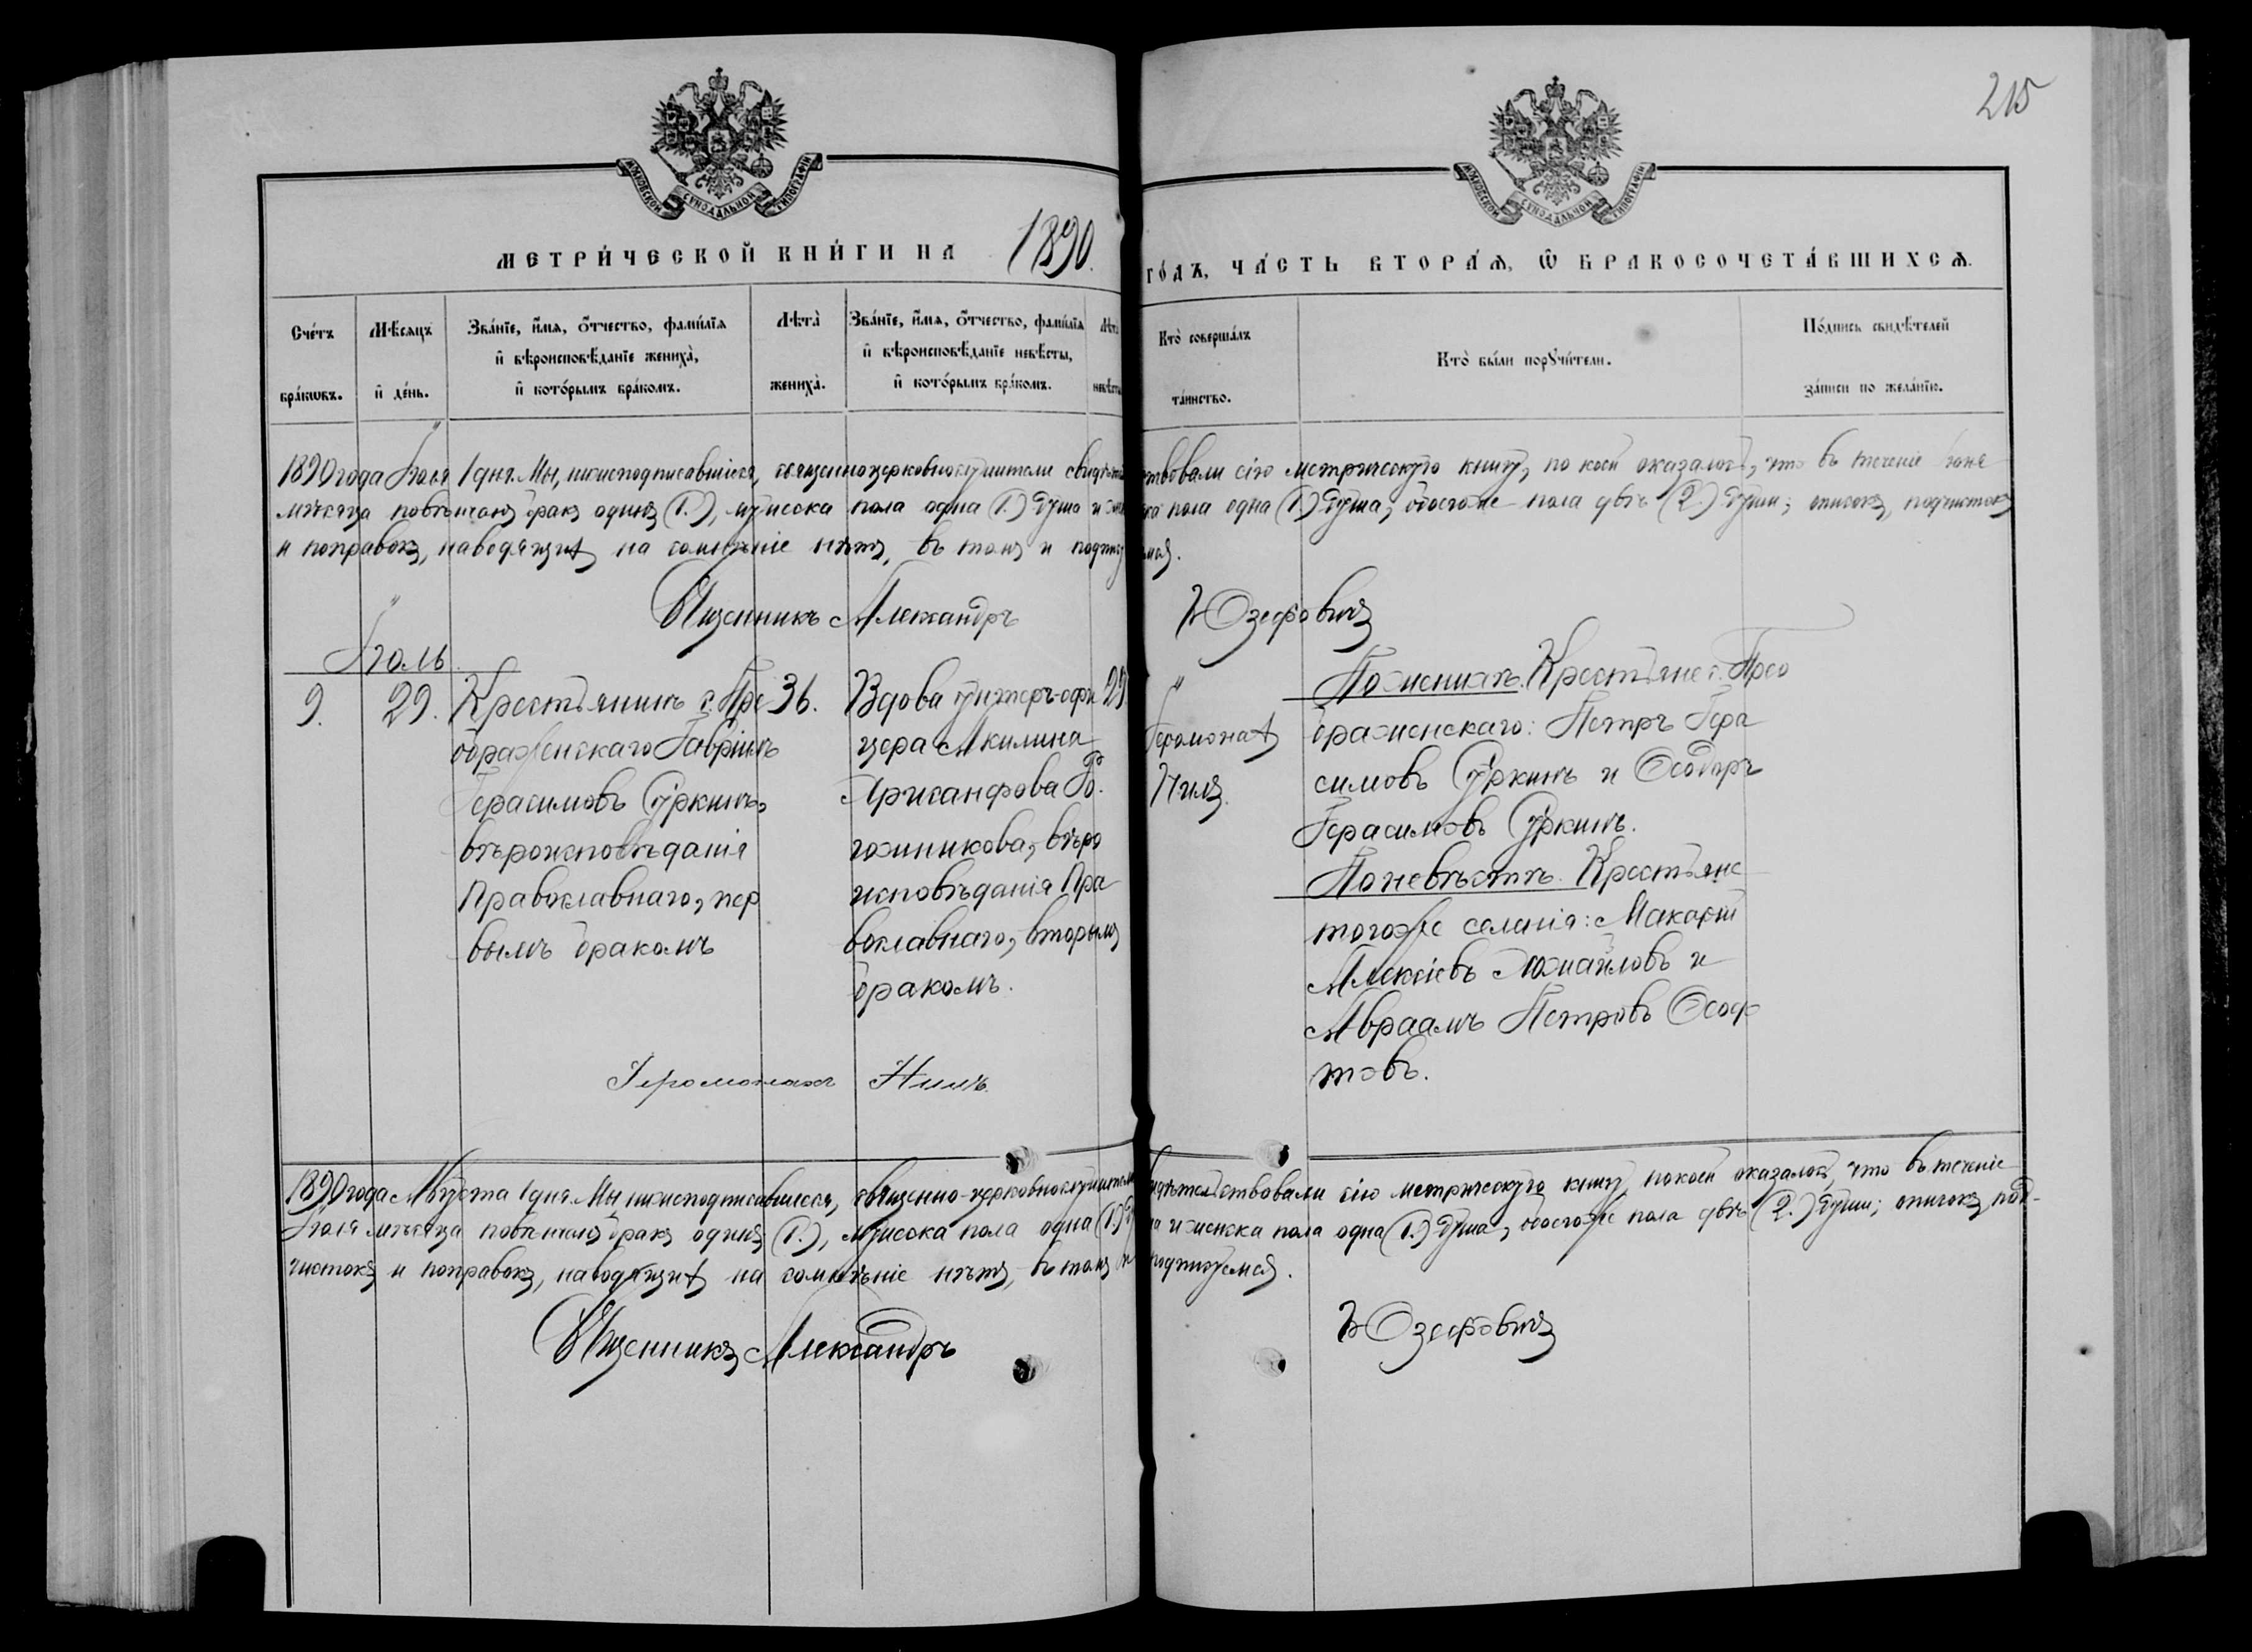 215
МОСКОВСКОЙ СѴНОДАЛЬНОЙ ТИПОГРАФІИ
МОСКОВСКОЙ СѴНОДАЛЬНОЙ ТИПОГРАФІИ
МЕТРИ́ЧЕСКОЙ КНИ́ГИ НА 1890. ГО́ДЪ, ЧА́СТЬ ВТОРА́Ѧ, Ѽ БРАКОСОЧЕТА́ВШИХСѦ.
Сче́тъ бра́кѡвъ.
Мѣ́сѧцъ и҆ де́нь.
Зва́нїе, и҆́мѧ, ѻ҆́тчество, фамѝлїѧ и҆ вѣроисповѣ́данїе жениха̀, и҆ кото́рымъ бра́комъ.
Лѣта̀ жениха̀.
Зва́нїе, и҆́мѧ, ѻ҆́тчество, фамѝлїѧ и҆ вѣроисповѣ́данїе невѣ́сты, и҆ кото́рымъ бра́комъ.
Лѣта̀ невѣсты
Кто̀ соверша́лъ та́инство.
Кто̀ бы́ли порꙋчи́тели.
По́дпись свидѣ́телей за́писи по жела́нїю.
1890 года Іюля 1 дня. Мы, нижеподписавшіеся, священноцерковнослужители свидѣтельствовали сію метрическую книгу, по коей оказалось, что въ теченіе Іюня
мѣсяца повѣнчанъ бракъ одинъ (1.), мужска пола одна (1.) душа и женска пола одна (1.) душа, обоего же пола двѣ (2.) души; описокъ, подчистокъ
и поправокъ, наводящихъ на сомнѣніе нѣтъ, въ томъ и подписуемся.
Священникъ Александръ Юзефовичъ
Іюль
9.
29.
Крестьянинъ с. Пре
ображенскаго Гавріилъ
Герасимовъ Суркинъ,
вѣроисповѣданія
Православнаго, пер
вымъ бракомъ
36.
Вдова унтеръ-офи
цера Акилина
Хрисанфова
жникова, вѣро
исповѣданія Пра
вославнаго, вторымъ
бракомъ.
29.
Іеромонахъ
Нилъ.
По женихѣ. Крестьяне с. Прео
браженскаго: Петръ Гера
симовъ Суркинъ и Ѳедоръ
Герасимовъ Суркинъ.
По невѣстѣ. Крестьяне
того же селенія: Макарій
Алексіевъ Ломайловъ и
Авраамъ Петровъ
товъ.
Іеромонахъ Нилъ
1890 года Августа 1 дня. Мы, нижеподписавшіеся, священно-церковнослужители свидѣтельствовали сію метрическую книгу, по коей оказалось, что въ теченіе
Іюля мѣсяца повѣнчанъ бракъ одинъ (1.), мужска пола одна (1.) душа и женска пола одна (1.) душа, обоего же пола двѣ (2.) души; описокъ, под-
чистокъ и поправокъ, наводящихъ на сомнѣніе нѣтъ, въ томъ и подписуемся.
Священникъ Александръ Юзефовичъ